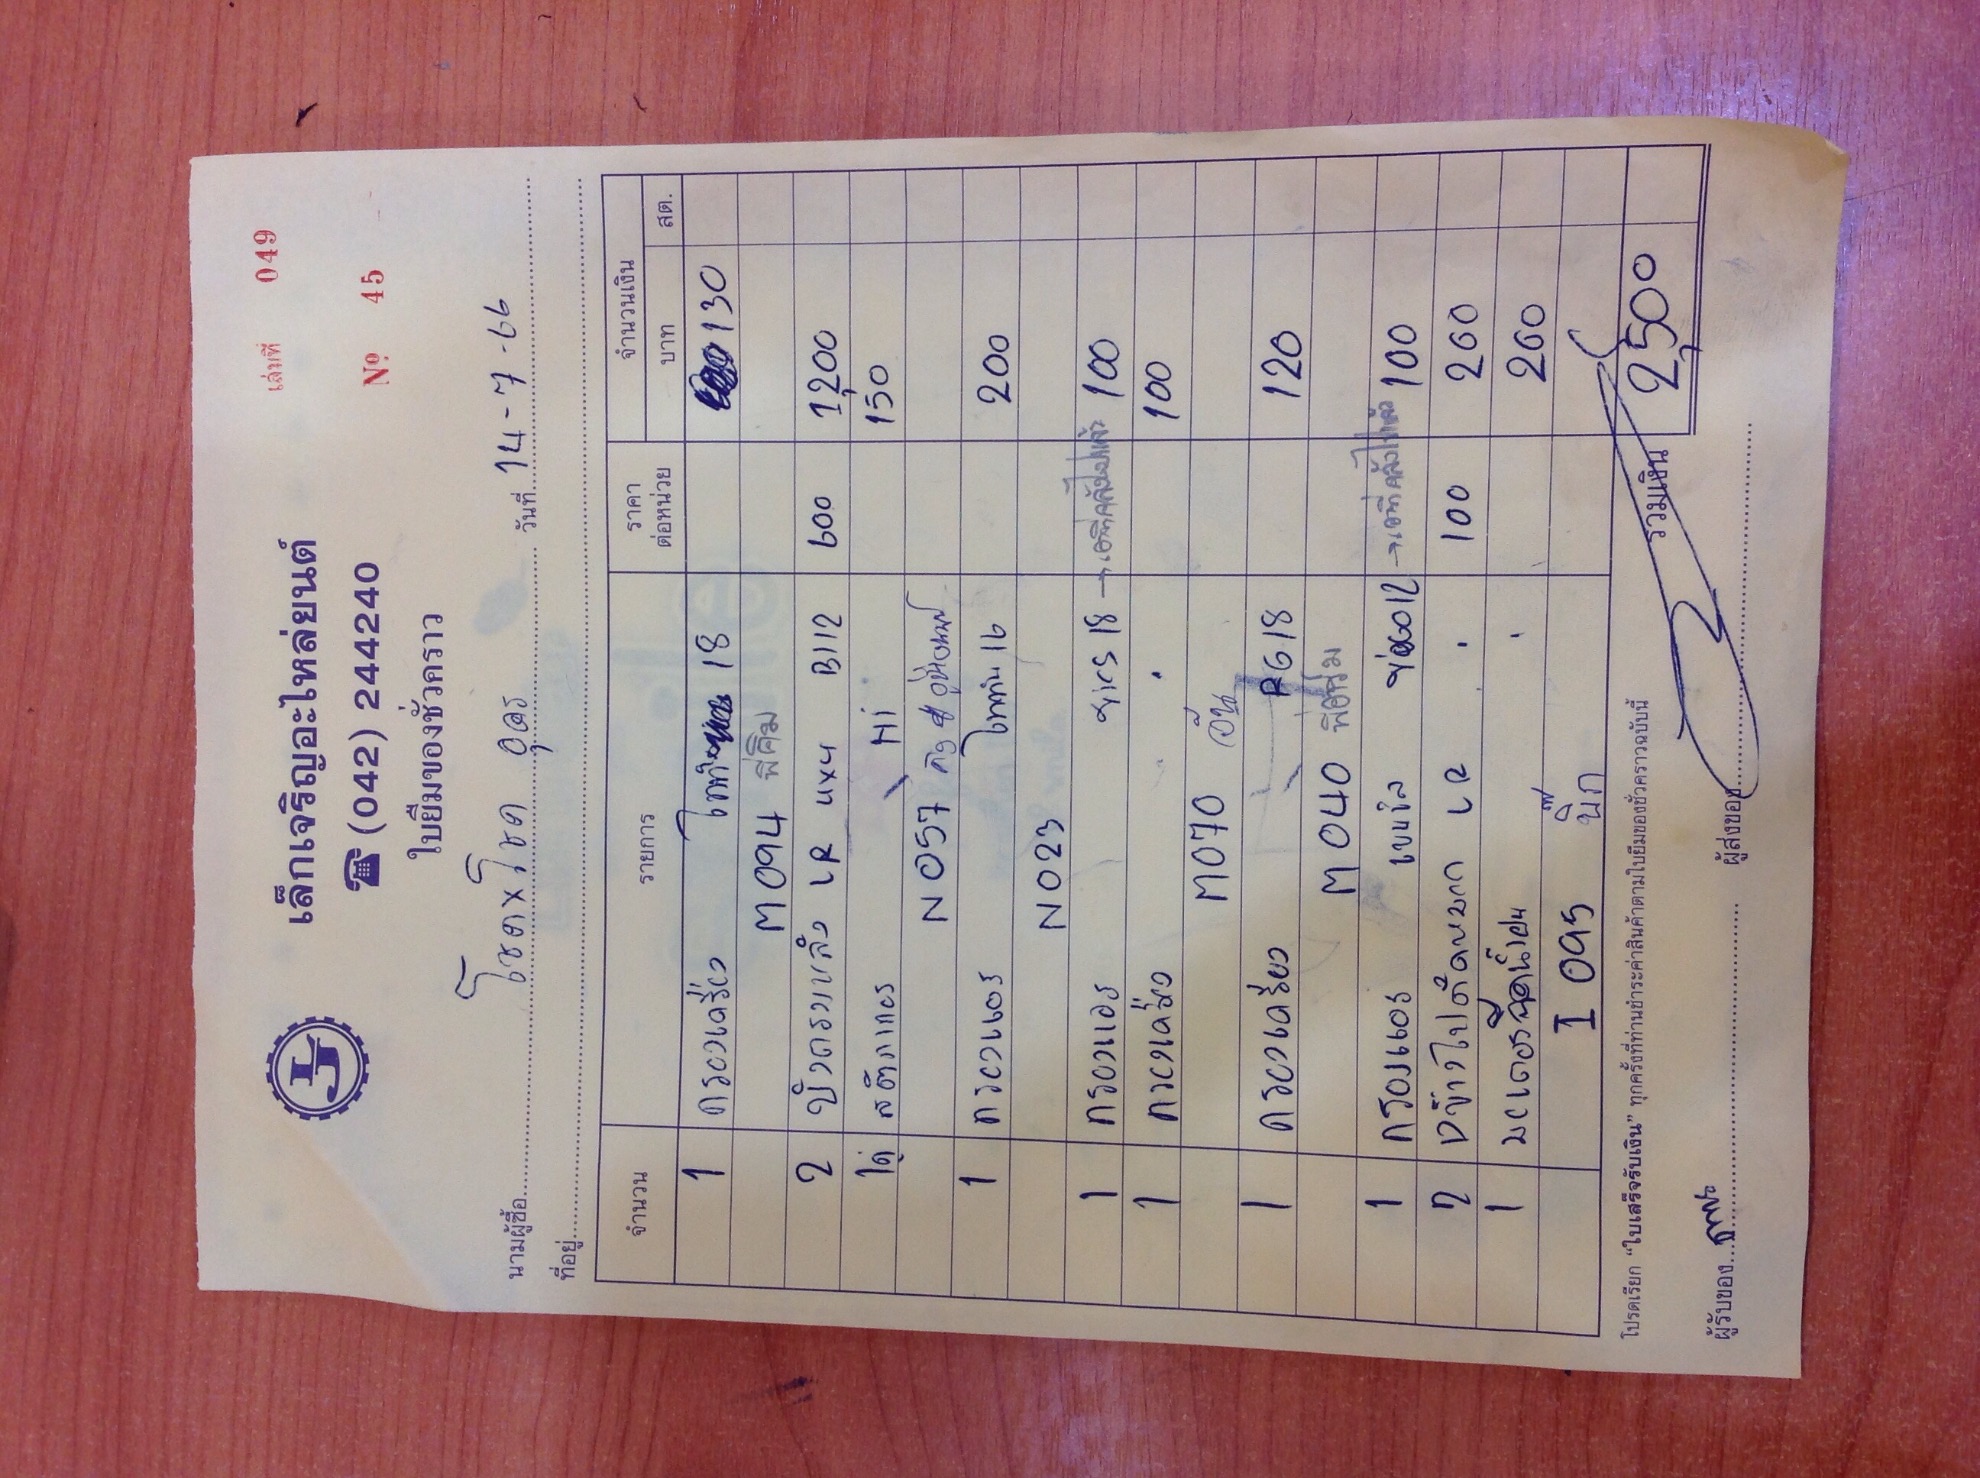 เล่มที่ 049
เล็กเจริญอะไหล่ยนต์
☎ (042) 244240
Nº 45
ใบยืมของชั่วคราว
นามผู้ซื้อ โชคxโชค อุดร วันที่ 14-7-66
ที่อยู่
จำนวน รายการ ราคาต่อหน่วย จำนวนเงิน
บาท สต.
1 กรองเครื่อง ไททัน 18 130
M094 พี่คิม
2 LR 4x4 B112 600 1,200
1คู่ สติกเกอร์ Hi 150
N057
1 กรองแอร์ ไททัน 16 200
N023
1 กรองแอร์ 18 → เอาที่คลังไปแล้ว 100
1 กรองเครื่อง " 100
M070
1 กรองเครื่อง RG18 120
M040
1 กรองแอร์ เบนซิล → เอาที่คลังไปแล้ว 100
2 LR " 100 260
1 " 260
I 095 พี่นก
โปรดเรียก "ใบเสร็จรับเงิน" ทุกครั้งที่ท่านชำระค่าสินค้าตามใบยืมของชั่วคราวฉบับนี้
รวมเงิน 2,500
ผู้รับของ
ผู้ส่งของ